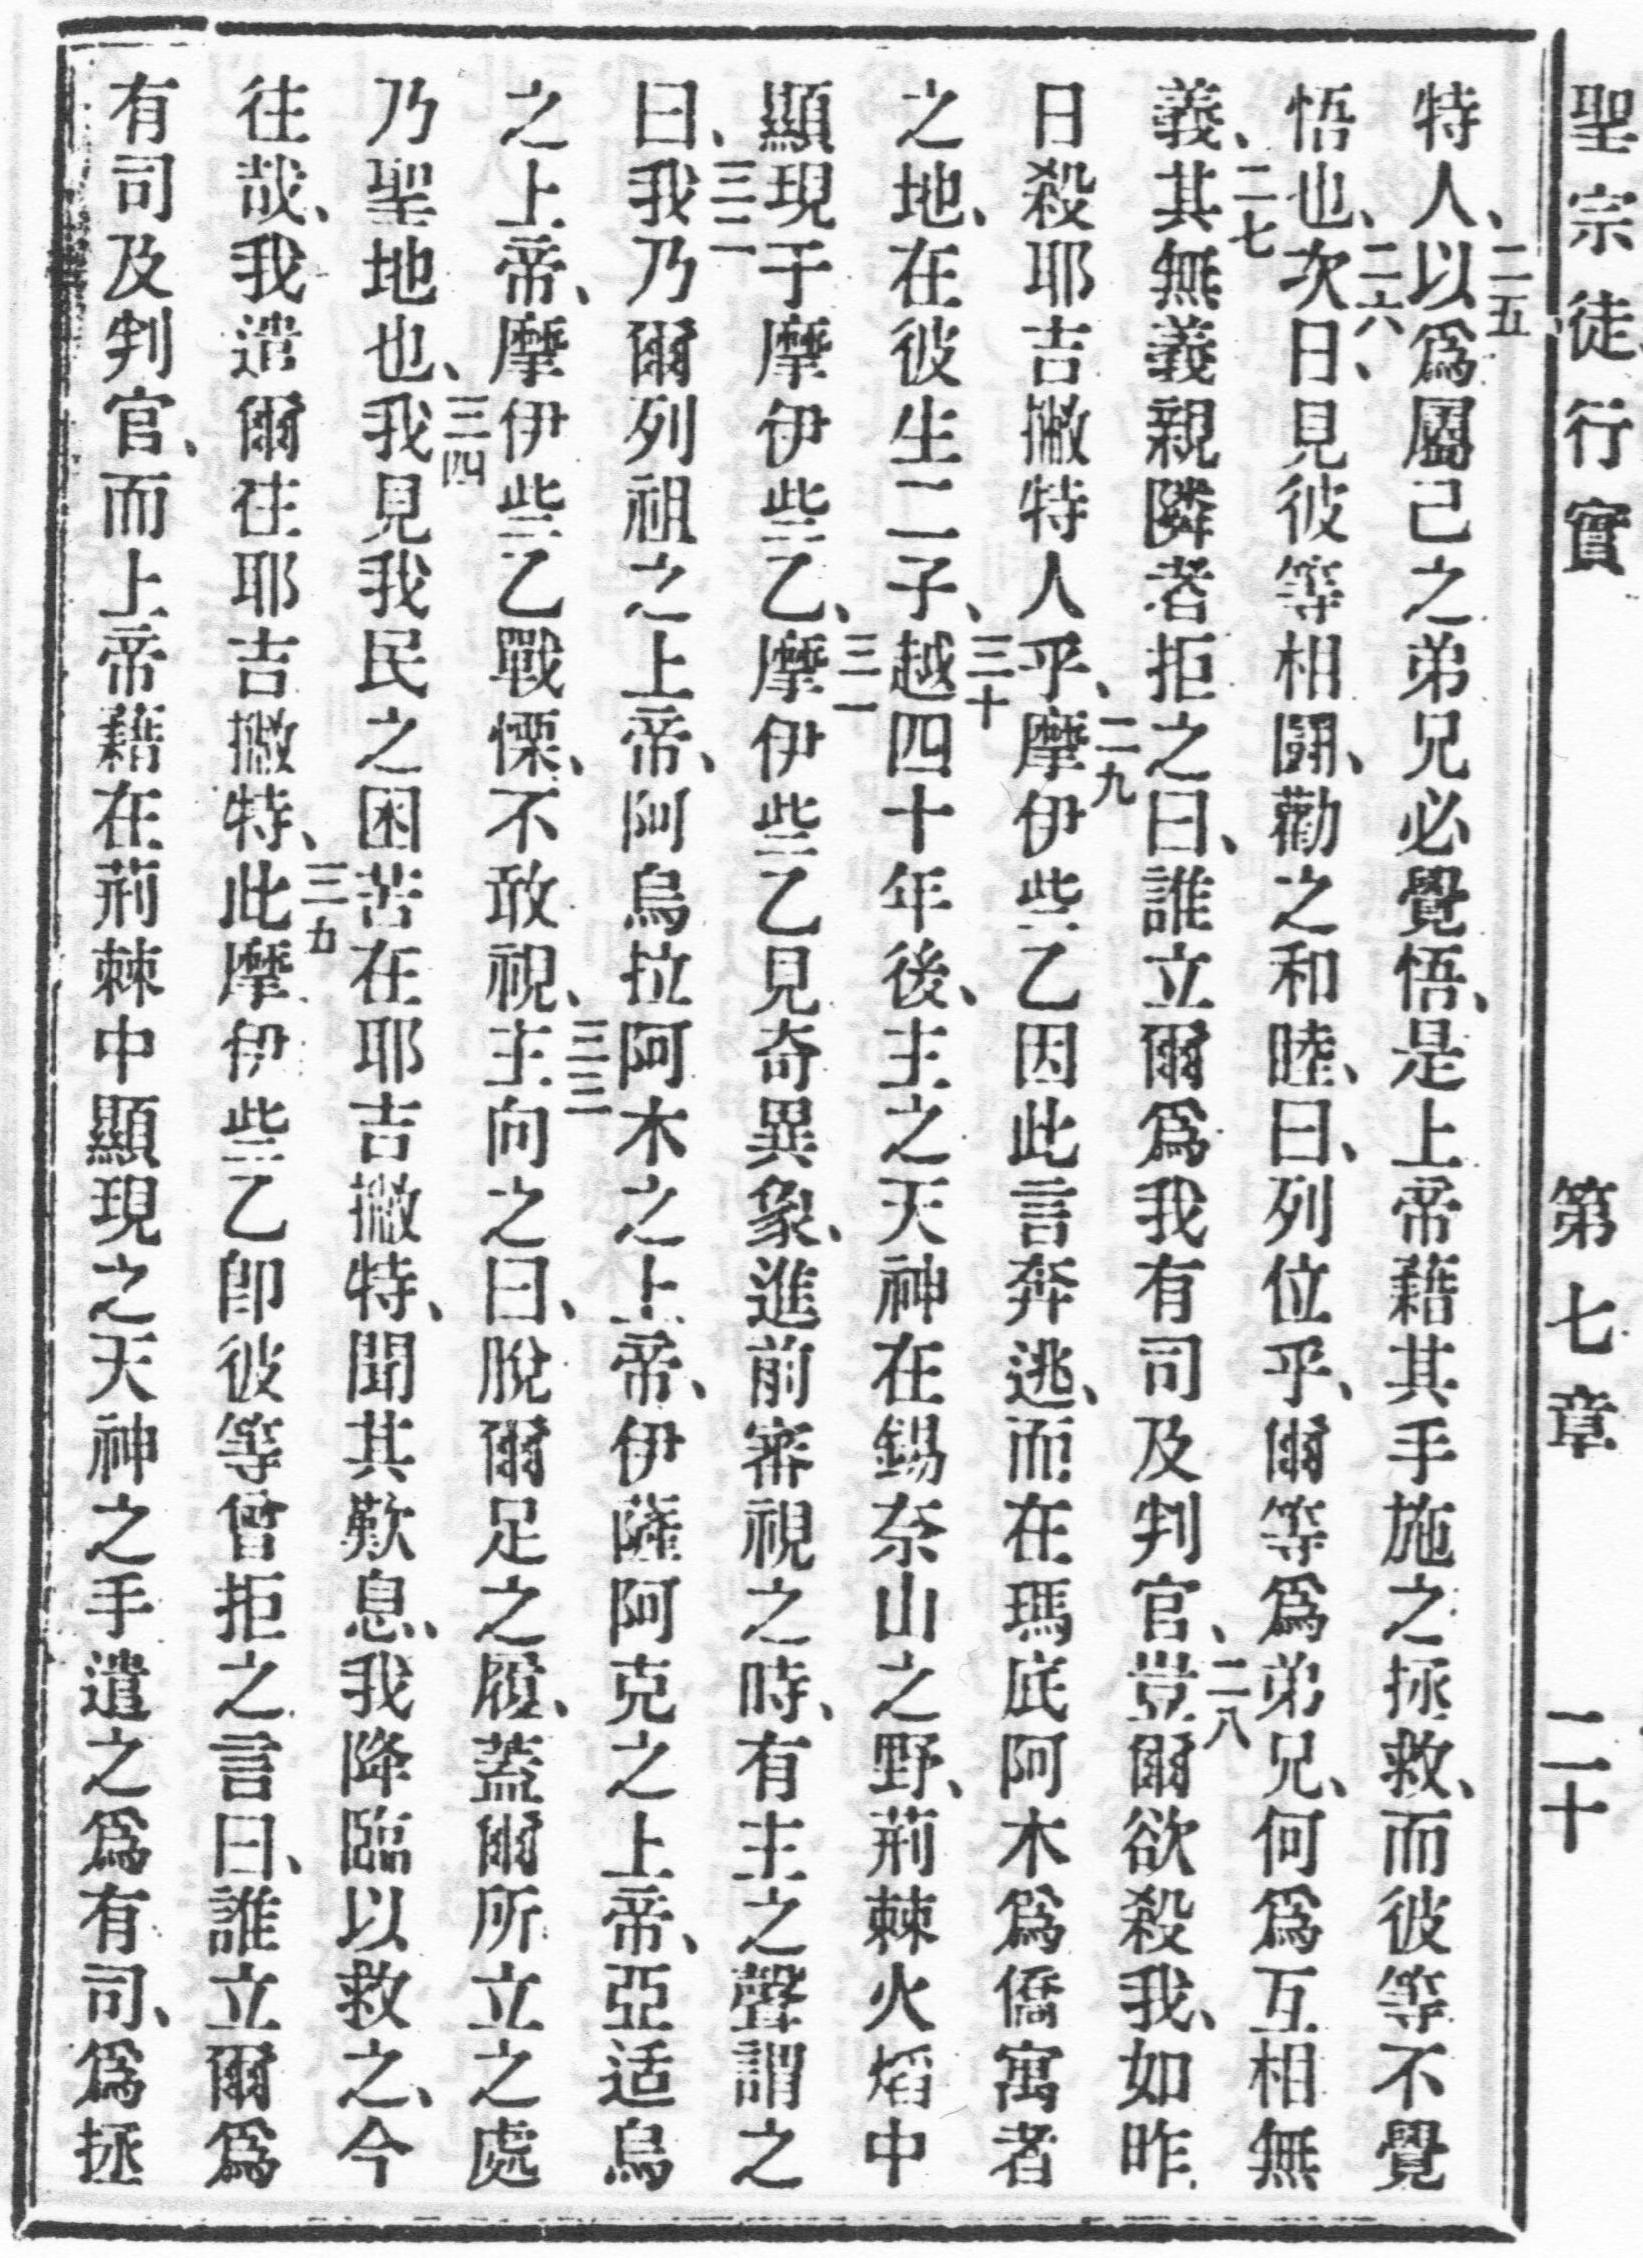 聖宗徒行實　第七章　二十
特人、二五以爲屬己之弟兄必覺悟、是上帝藉其手施之拯救、而彼等不覺
悟也、二六次日、見彼等相鬪、勸之和睦、曰、列位乎、爾等爲弟兄、何爲互相無
義、二七其無義親隣者拒之曰、誰立爾爲我有司及判官、二八豈爾欲殺我、如昨
日殺耶吉撇特人乎、二九摩伊些乙因此言奔逃、而在瑪底阿木爲僑寓者
之地、在彼生二子、三十越四十年後、主之天神在錫奈山之野、荊棘火熖中
顯現于摩伊些乙、三一摩伊些乙見奇異象、進前審視之時、有主之聲謂之
曰、三二我乃爾列祖之上帝、阿烏拉阿木之上帝、伊薩阿克之上帝、亞适烏
之上帝、摩伊些乙戰慄、不敢視、三三主向之曰、脫爾足之履、蓋爾所立之處
乃聖地也、三四我見我民之困苦在耶吉撇特、聞其歎息、我降臨以救之、今
往哉、我遣爾往耶吉撇特、三五此摩伊些乙卽彼等曾拒之言曰、誰立爾爲
有司及判官、而上帝藉在荊棘中顯現之天神之手遣之爲有司、爲拯